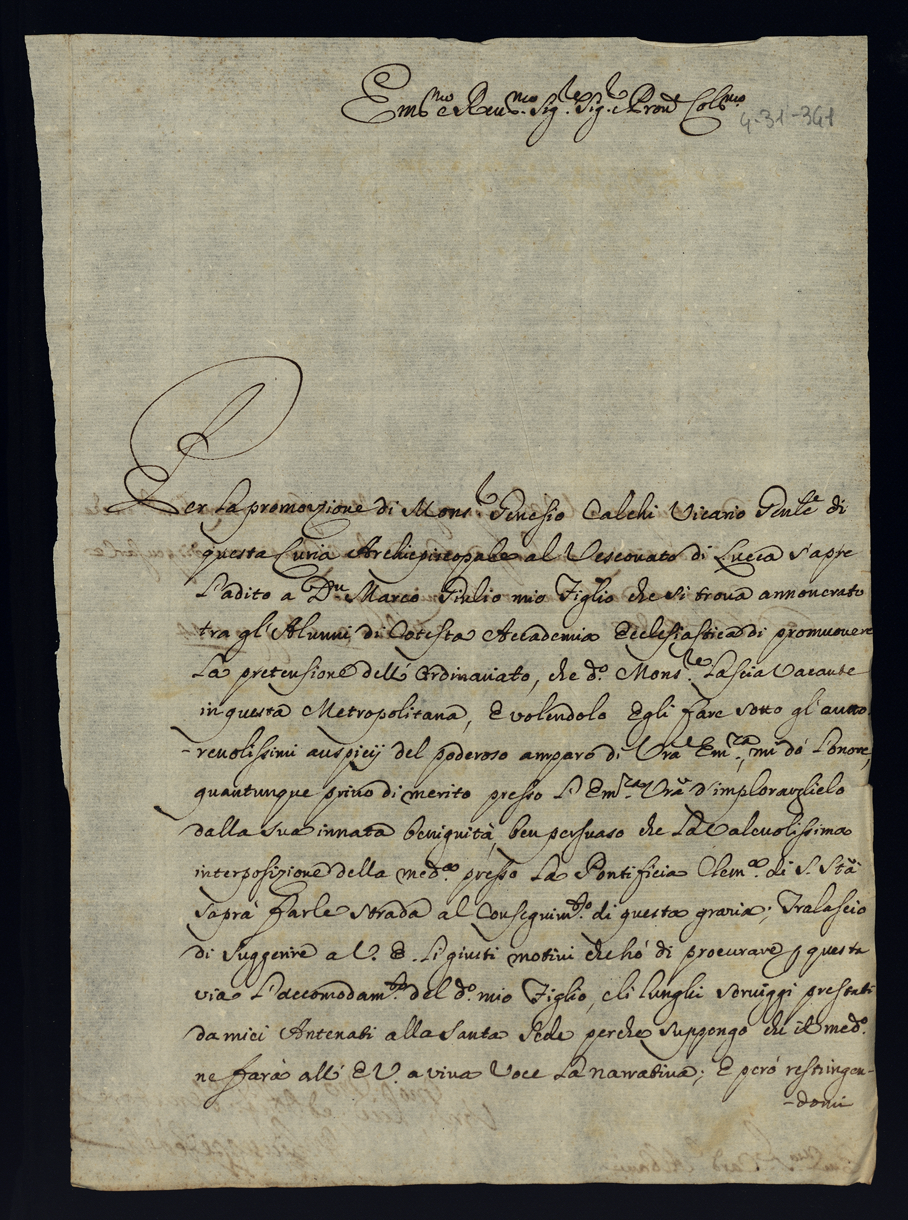 Em.mo e Reu.mo Sig.re Sig.re e Pron.e Col.mo
4-31-341
Per la promozione di Mons.r Genesio Calchi Vicario Gnle di
questa Curia Archiepiscopale al Vescouato di Lucca s'apre
l'adito a Dn Marco Giulio mio Figlio che si troua annouerato
tra gl'Alunni di Cotesta Accademia Ecclesiastica di promuouere
la pretensione dell'Ordinariato, che d.o Mons.re lascia Vacante
in questa Metropolitana, E volendolo Egli fare sotto gl'autto
-reuolissimi auspicij del poderoso amparo di Vra Em.za, mi dó l'onore,
quantunque priuo di merito presso l'Em.za Vra d'implorarglielo
dalla sua innata benignità, ben persuaso che la Valeuolissima
interposizione della med.a presso la Pontificia Clem.a di S. Stà
saprà farle strada al Conseguim.to di questa grazia; Tralascio
di suggerire a V. E. li giusti motiui che hó di procurare p questa
via l'accomodam.to del d.o mio Figlio, e li lunghi seruiggi prestati
da miei Antenati alla Santa Sede perche suppongo che il med.o
ne farà all'E V. a viua Voce la narratiua; E peró restringen-
-domi